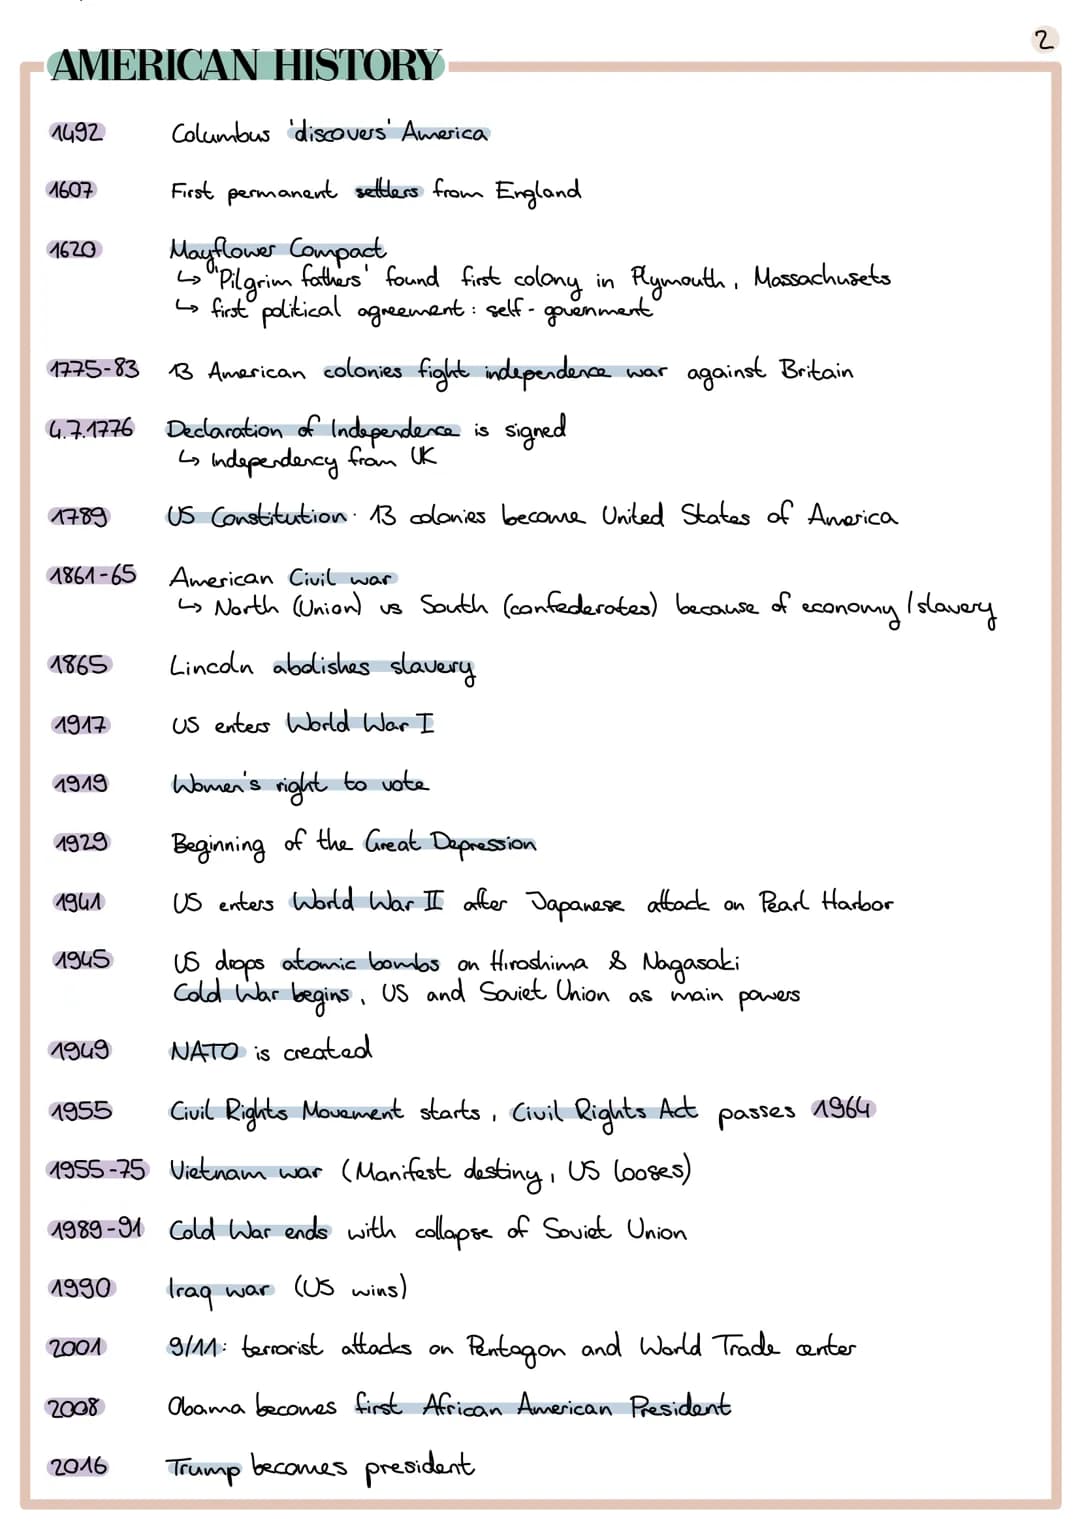 2
AMERICAN HISTORY
1492 Columbus 'discovers' America
1607 First permanent settlers from England
1620 Mayflower Compact
↳ "Pilgrim fathers' found first colony in Plymouth, Massachusets
↳ first political agreement: self-government
1775-83 13 American colonies fight independence war against Britain
4.7.1776 Declaration of Independence is signed
↳ Independency from UK
1789 US Constitution: 13 colonies become United States of America
1861-65 American Civil war
↳ North (Union) vs South (confederates) because of economy/slavery
1865 Lincoln abolishes slavery
1917 US enters World War I
1919 Women's right to vote
1929 Beginning of the Great Depression
1941 US enters World War II after Japanese attack on Pearl Harbor
1945 US drops atomic bombs on Hiroshima & Nagasaki
Cold War begins, US and Soviet Union as main powers
1949 NATO is created
1955 Civil Rights Movement starts, Civil Rights Act passes 1964
1955-75 Vietnam war (Manifest destiny, US looses)
1989-91 Cold War ends with collapse of Soviet Union
1990 Iraq war (US wins)
2001 9/11: terrorist attacks on Pentagon and World Trade center
2008 Obama becomes first African American President
2016 Trump becomes president